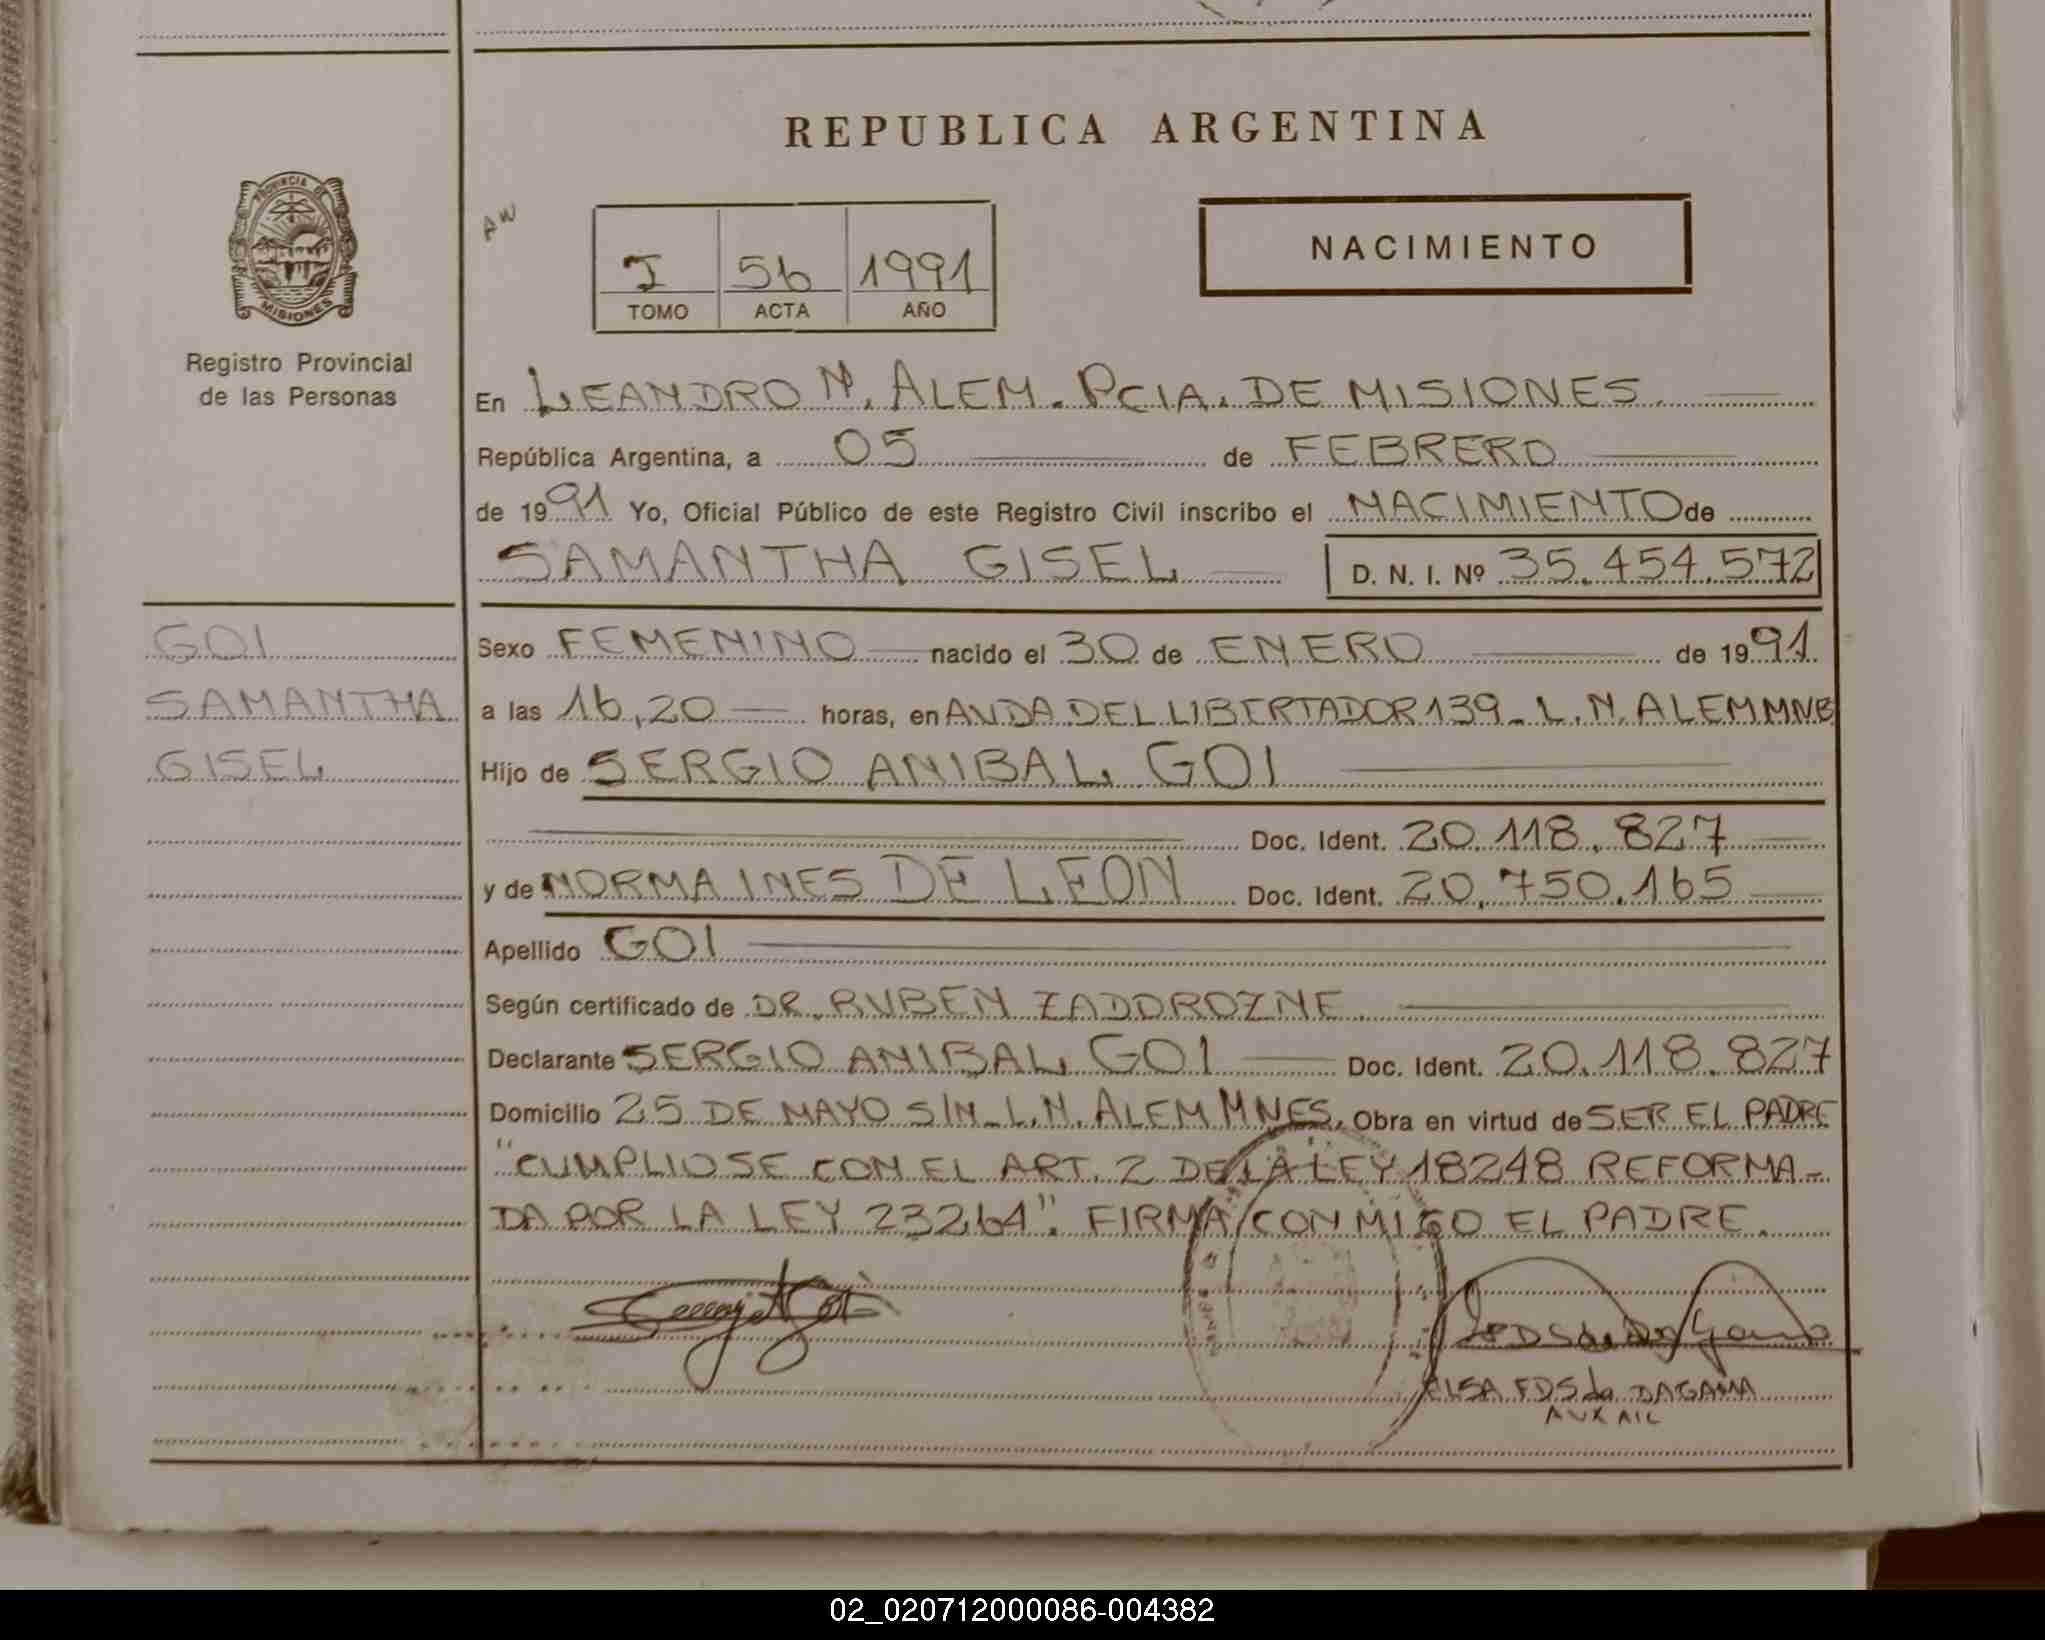 REPUBLICA ARGENTINA
PROVINCIA DE
MISIONES
Registro Provincial
de las Personas
AW
I 56 1991
TOMO ACTA AÑO
NACIMIENTO
En LEANDRO N. ALEM. PCIA. DE MISIONES.
República Argentina, a 05 de FEBRERO
de 1991 Yo, Oficial Público de este Registro Civil inscribo el NACIMIENTO de
SAMANTHA GISEL D. N. I. Nº 35.454.572
GOI
SAMANTHA
GISEL
Sexo FEMENINO nacido el 30 de ENERO de 1991
a las 16,20 horas, en AVDA. DEL LIBERTADOR 139 - L. N. ALEM MN
Hijo de SERGIO ANIBAL GOI
Doc. Ident. 20.118.827
y de NORMA INES DE LEON Doc. Ident. 20.750.165
Apellido GOI
Según certificado de DR. RUBEN ZADOROZNE
Declarante SERGIO ANIBAL GOI Doc. Ident. 20.118.827
Domicilio 25 DE MAYO S/N - L. N. ALEM MNES. Obra en virtud de SER EL PADRE
"CUMPLIOSE CON EL ART. 2 DE LA LEY 18248 REFORMA-
DA POR LA LEY 23264". FIRMA CONMIGO EL PADRE.
ELSA F DS de DAGAMA
AUX
02_020712000086-004382